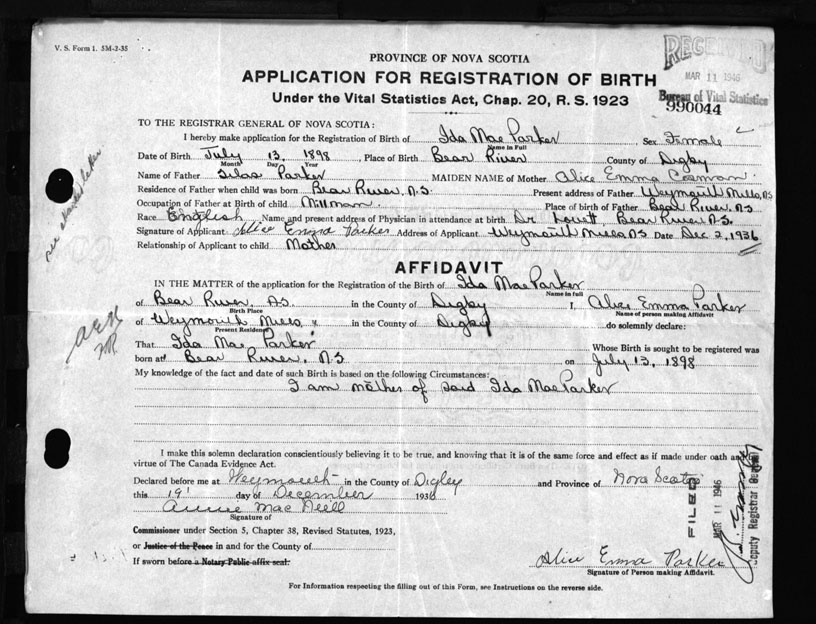 V. S. Form 1. 5M-2-35
PROVINCE OF NOVA SCOTIA
RECEIVED
MAR 11 1946
Bureau of Vital Statistics
990044
APPLICATION FOR REGISTRATION OF BIRTH
Under the Vital Statistics Act, Chap. 20, R. S. 1923
TO THE REGISTRAR GENERAL OF NOVA SCOTIA:
I hereby make application for the Registration of Birth of Ida Mae Parker Sex Female
Name in Full
Date of Birth July 13, 1898, Place of Birth Bear River County of Digby
Month Day Year
Name of Father Silas Parker MAIDEN NAME of Mother Alice Emma Cosman
Residence of Father when child was born Bear River, N.S. Present address of Father Weymouth Mills, N.S
Occupation of Father at Birth of child Millman. Place of birth of Father Bear River, N.S
Race English Name and present address of Physician in attendance at birth Dr Lovett, Bear River N.S.
Signature of Applicant Alice Emma Parker Address of Applicant Weymouth Mills N.S Date Dec 2, 1936
Relationship of Applicant to child Mother
AFFIDAVIT
IN THE MATTER of the application for the Registration of the Birth of Ida Mae Parker
Name in full
of Bear River, N.S. in the County of Digby I, Alice Emma Parker
Birth Place Name of person making Affidavit
of Weymouth Mills, in the County of Digby do solemnly declare:
Present Residence
That Ida Mae Parker Whose Birth is sought to be registered was
born at Bear River, N.S on July 13, 1898
My knowledge of the fact and date of such Birth is based on the following Circumstances:
I am mother of said Ida Mae Parker
I make this solemn declaration conscientiously believing it to be true, and knowing that it is of the same force and effect as if made under oath and in
virtue of The Canada Evidence Act.
Declared before me at Weymouth in the County of Digby and Province of Nova Scotia
this 19 day of December 1936
Annie Mac Neill
Signature of
Commissioner under Section 5, Chapter 38, Revised Statutes, 1923,
or Justice of the Peace in and for the County of
If sworn before a Notary Public affix seal.
Alice Emma Parker
Signature of Person making Affidavit.
FILED
MAR 11 1946
Deputy Registrar General
For Information respecting the filling out of this Form, see Instructions on the reverse side.